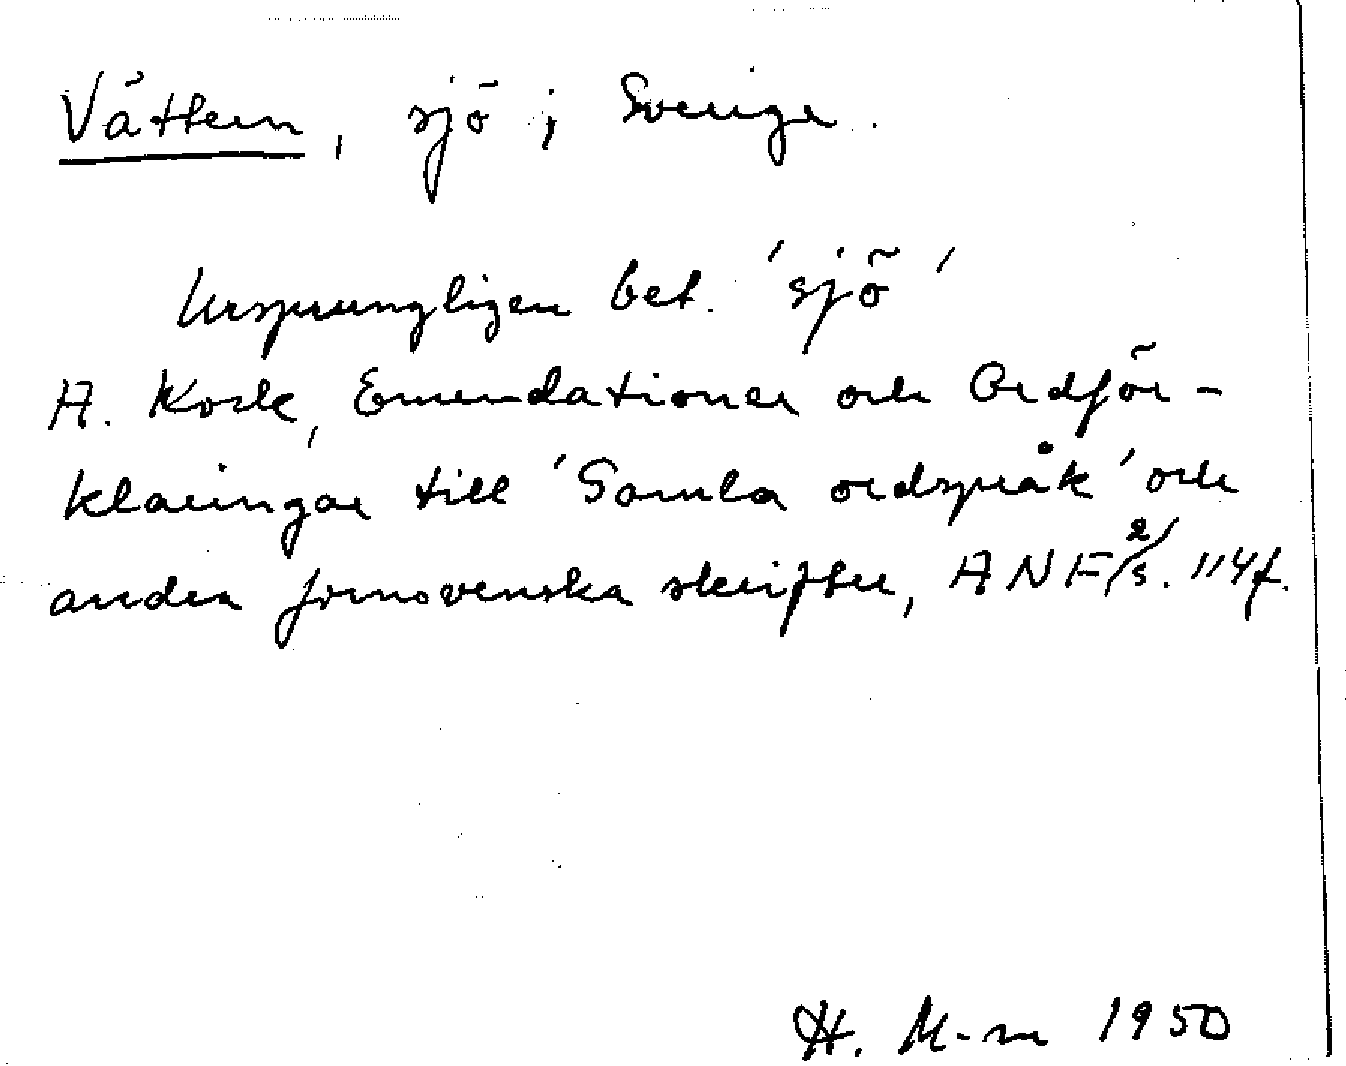 Vättern, sjö i Sverige.
Ursprungligen bet. 'sjö'
A. Kock, Emendationer och Ordför-
klaringar till 'Samla ordspråk' och
andra fornsvenska skrifter, ANF 2/s. 114f.
H. M-m 1950